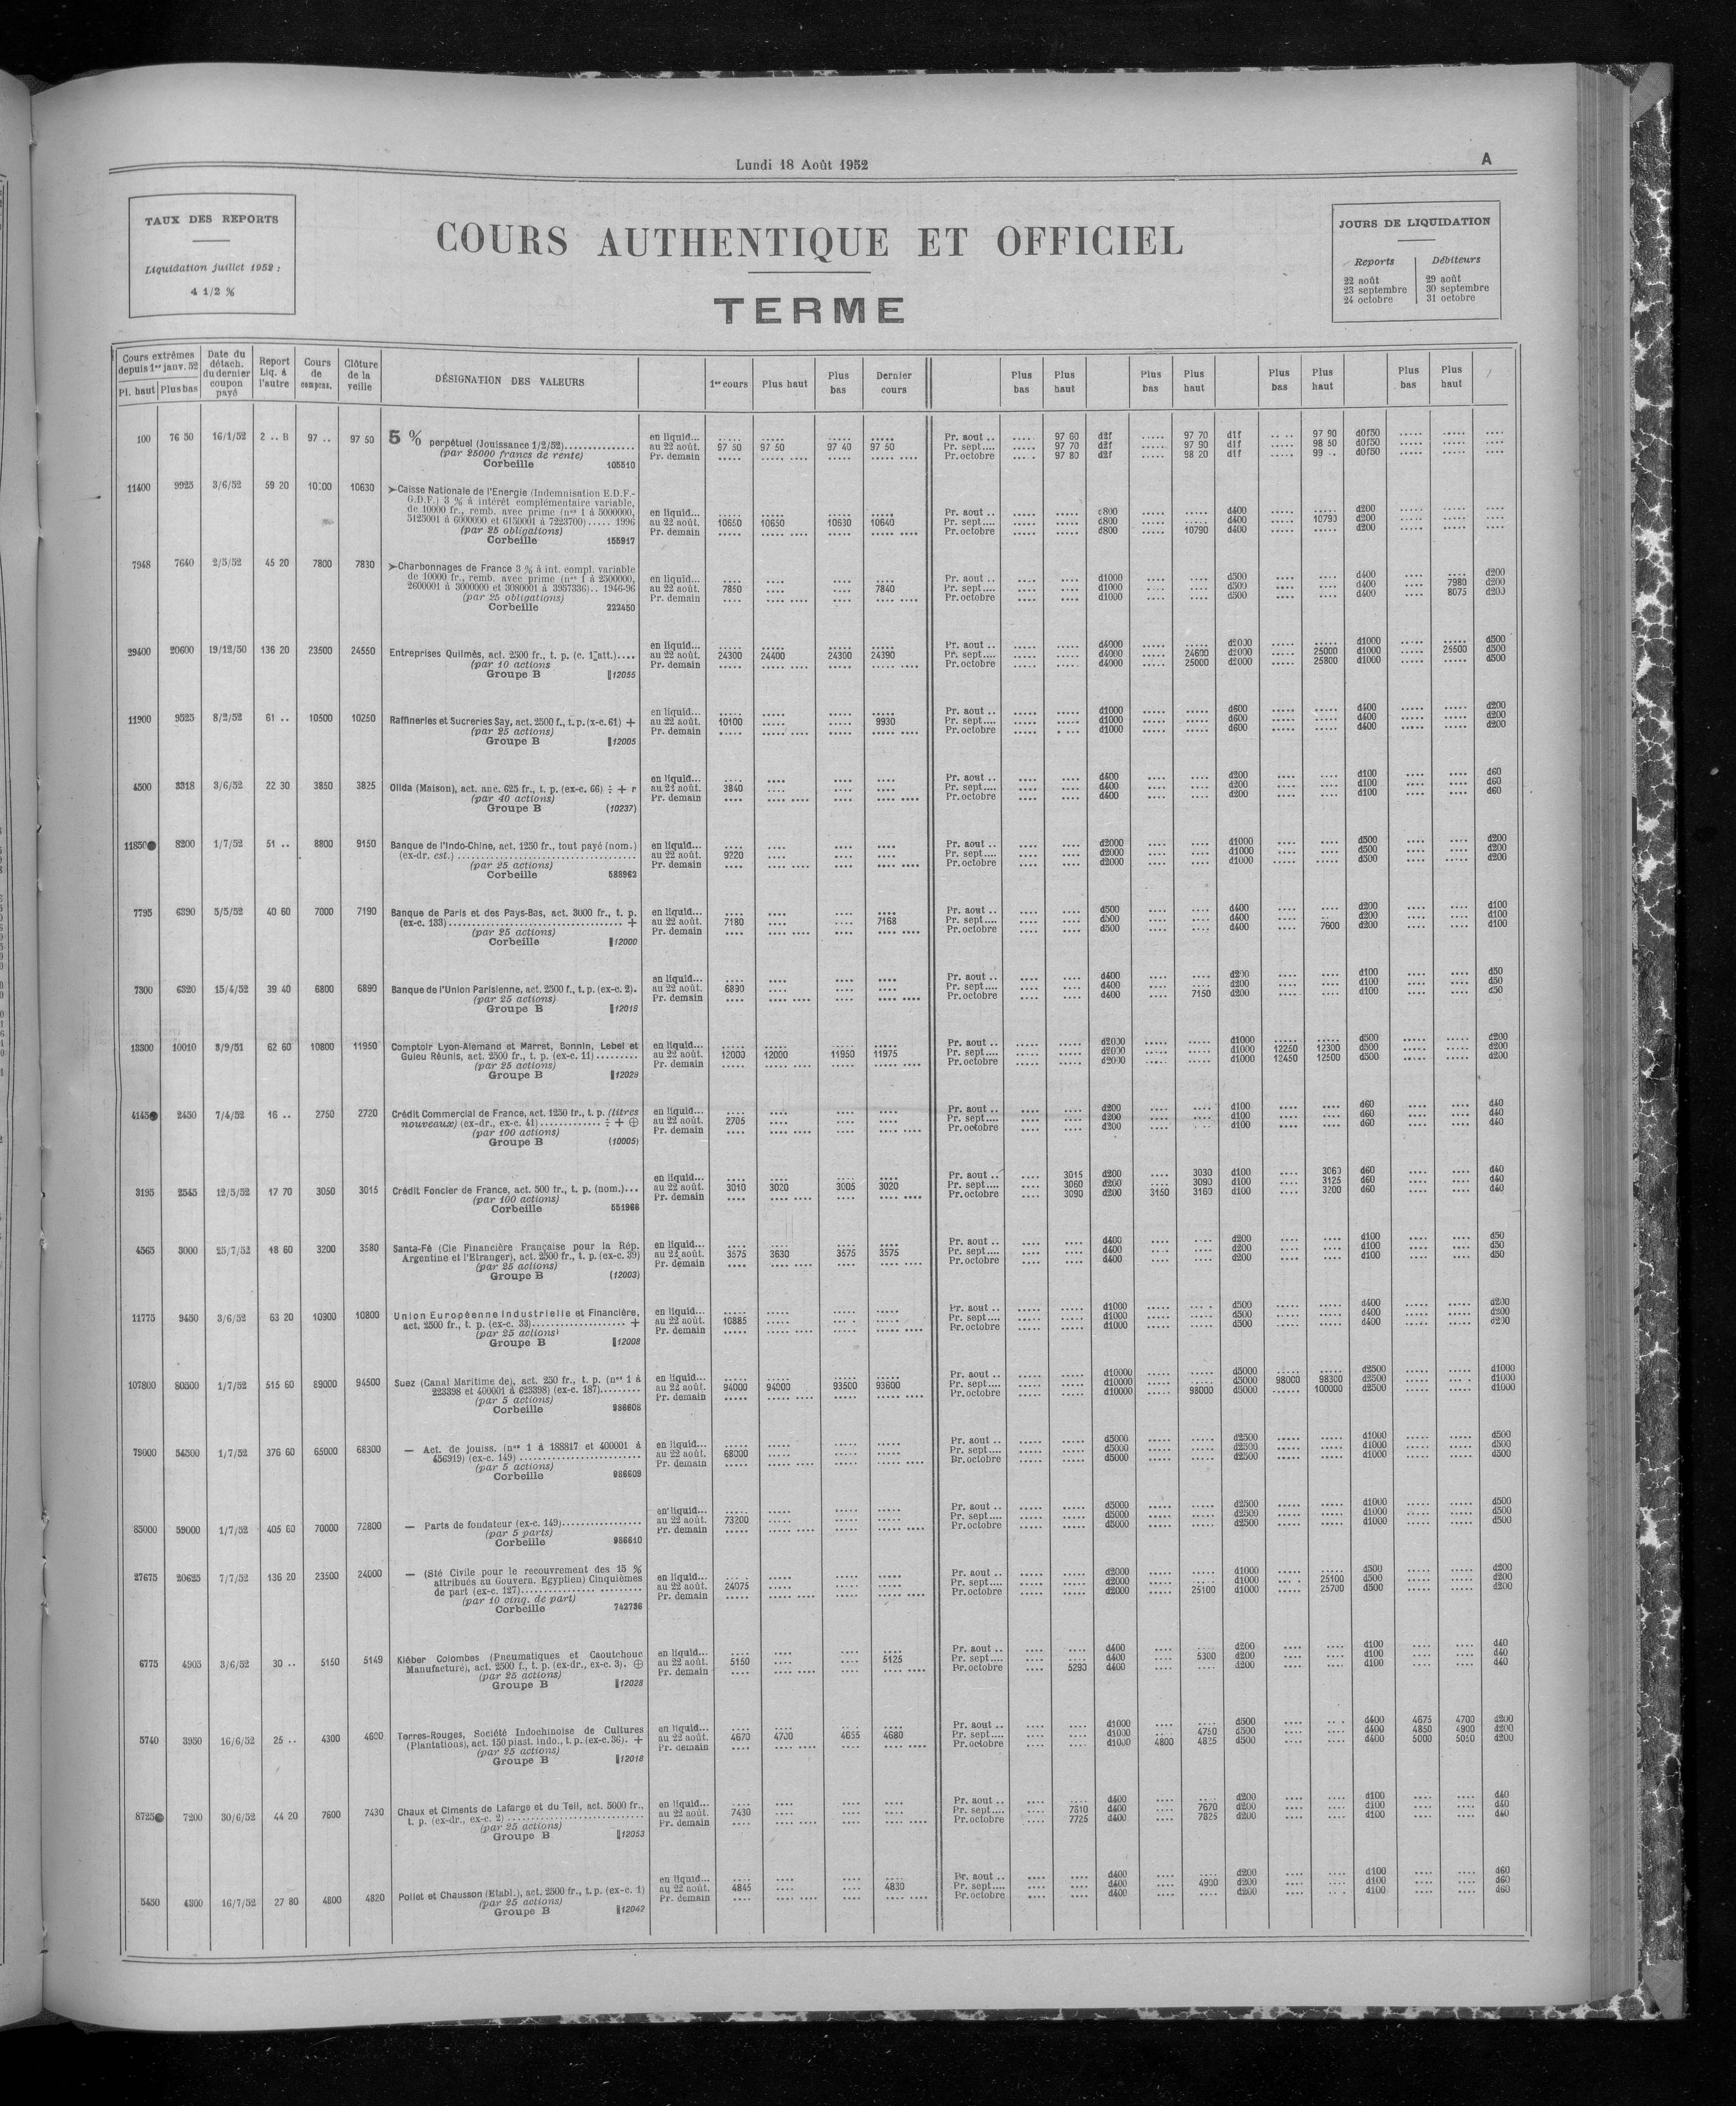 Lundi 18 Août 1952
A
TAUX DES REPORTS
Liquidation juillet 1952 :
4 1/2 %
COURS AUTHENTIQUE ET OFFICIEL
TERME
JOURS DE LIQUIDATION
Reports Débiteurs
22 août 29 août
23 septembre 30 septembre
24 octobre 31 octobre
Cours extrêmes depuis 1er janv. 52 Pl. haut Plus bas Date du détach. du dernier coupon payé Report Liq. à l'autre Cours de compens. Clôture de la veille DÉSIGNATION DES VALEURS 1er cours Plus haut Plus bas Dernier cours Plus bas Plus haut Plus bas Plus haut Plus bas Plus haut Plus bas Plus haut
en liquid... ..... ..... ..... ..... Pr. aout .. ..... 97 60 d2f ..... 97 70 d1f ..... 97 90 d0f50 ..... ..... .....
100 76 50 16/1/52 2 .. B 97 .. 97 50 5 % perpétuel (Jouissance 1/2/52)............. au 22 août. 97 50 97 50 97 40 97 50 Pr. sept.... ..... 97 70 d2f ..... 97 90 d1f ..... 98 50 d0f50 ..... ..... .....
(par 25000 francs de rente) Pr. demain ..... ..... .... ..... ..... .... Pr. octobre ..... 97 80 d2f ..... 98 20 d1f ..... 99 .. d0f50 ..... ..... .....
Corbeille 105510
11400 9925 3/6/52 59 20 10630 ➤Caisse Nationale de l'Energie (Indemnisation E.D.F.-
G.D.F.) 3 % à intérêt complémentaire variable,
de 10000 fr., remb. avec prime (nos 1 à 5000000, en liquid... Pr. aout .. d800 d400 d200
5125001 à 6000000 et 6150001 à 7223700)..... 1996 au 22 août. 10650 10650 10630 10640 Pr. sept.... d800 d400 10790 d200
(par 25 obligations) Pr. demain Pr. octobre d800 10790 d400 d200
Corbeille 155917
7948 7640 2/5/52 45 20 7800 7830 ➤Charbonnages de France 3 % à int. compl. variable
de 10000 fr., remb. avec prime (nos 1 à 2500000, en liquid... Pr. aout .. d1000 d500 d400 d200
2600001 à 3000000 et 3080001 à 3957336).. 1946-96 au 22 août. 7850 7840 Pr. sept.... d1000 d500 d400 7980 d200
(par 25 obligations) Pr. demain Pr. octobre d1000 d500 d400 8075 d200
Corbeille 222450
en liquid... Pr. aout .. d4000 d2000 d1000 d500
29400 20600 19/12/50 136 20 23500 24550 Entreprises Quilmès, act. 2500 fr., t. p. (c. 1 att.).... au 22 août. 24300 24400 24300 24390 Pr. sept.... d4000 24600 d2000 25000 d1000 25500 d500
(par 10 actions Pr. demain Pr. octobre d4000 25000 d2000 25800 d1000 d500
Groupe B 12055
en liquid... Pr. aout .. d1000 d600 d400 d200
11900 9525 8/2/52 61 .. 10500 10250 Raffineries et Sucreries Say, act. 2500 f., t. p. (x-c. 61) + au 22 août. 10100 9930 Pr. sept.... d1000 d600 d400 d200
(par 25 actions) Pr. demain Pr. octobre d1000 d600 d400 d200
Groupe B 12005
en liquid... Pr. aout .. d400 d200 d100 d60
4500 3318 3/6/52 22 30 3850 3825 Olida (Maison), act. anc. 625 fr., t. p. (ex-c. 66) ÷ + r au 22 août. 3840 Pr. sept.... d400 d200 d100 d60
(par 40 actions) Pr. demain Pr. octobre d400 d200 d100 d60
Groupe B (10237)
11850● 8200 1/7/52 51 .. 8800 9150 Banque de l'Indo-Chine, act. 1250 fr., tout payé (nom.) en liquid... Pr. aout .. d2000 d1000 d500 d200
(ex-dr. est.) .................................... au 22 août. 9220 Pr. sept.... d2000 d1000 d500 d200
(par 25 actions) Pr. demain Pr. octobre d2000 d1000 d500 d200
Corbeille 588962
7795 6390 5/5/52 40 60 7000 7190 Banque de Paris et des Pays-Bas, act. 3000 fr., t. p. en liquid... Pr. aout .. d500 d400 d200 d100
(ex-c. 133).................................. + au 22 août. 7180 7168 Pr. sept.... d500 d400 d200 d100
(par 25 actions) Pr. demain Pr. octobre d500 d400 7600 d200 d100
Corbeille 12000
en liquid... Pr. aout .. d400 d200 d100 d50
7300 6320 15/4/52 39 40 6800 6890 Banque de l'Union Parisienne, act. 2500 f., t. p. (ex-c. 2). au 22 août. 6890 Pr. sept.... d400 d200 d100 d50
(par 25 actions) Pr. demain Pr. octobre d400 7150 d200 d100 d50
Groupe B 12019
13300 10010 3/9/51 62 60 10800 11950 Comptoir Lyon-Alemand et Marret, Bonnin, Lebel et en liquid... Pr. aout .. d2000 d1000 d500 d200
Guieu Réunis, act. 2500 fr., t. p. (ex-c. 11)......... au 22 août. 12000 12000 11950 11975 Pr. sept.... d2000 d1000 12250 12300 d500 d200
(par 25 actions) Pr. demain Pr. octobre d2000 d1000 12450 12500 d500 d200
Groupe B 12029
4145● 2450 7/4/52 16 .. 2750 2720 Crédit Commercial de France, act. 1250 fr., t. p. (titres en liquid... Pr. aout .. d200 d100 d60 d40
nouveaux) (ex-dr., ex-c. 41)............ ÷ + ⊕ au 22 août. 2705 Pr. sept.... d200 d100 d60 d40
(par 100 actions) Pr. demain Pr. octobre d200 d100 d60 d40
Groupe B (10005)
en liquid... Pr. aout .. 3015 d200 3030 d100 3060 d60 d40
3195 2545 12/5/52 17 70 3050 3015 Crédit Foncier de France, act. 500 fr., t. p. (nom.)... au 22 août. 3010 3020 3005 3020 Pr. sept.... 3060 d200 3090 d100 3125 d60 d40
(par 100 actions) Pr. demain Pr. octobre 3090 d200 3150 3160 d100 3200 d60 d40
Corbeille 551966
4565 3000 25/7/52 48 60 3200 3580 Santa-Fé (Cie Financière Française pour la Rép. en liquid... Pr. aout .. d400 d200 d100 d50
Argentine et l'Etranger), act. 2500 fr., t. p. (ex-c. 39) au 22 août. 3575 3630 3575 3575 Pr. sept.... d400 d200 d100 d50
(par 25 actions) Pr. demain Pr. octobre d400 d200 d100 d50
Groupe B (12003)
11775 9450 3/6/52 63 20 10900 10800 Union Européenne Industrielle et Financière, en liquid... Pr. aout .. d1000 d500 d400 d200
act. 2500 fr., t. p. (ex-c. 33)................... + au 22 août. 10885 Pr. sept.... d1000 d500 d400 d200
(par 25 actions) Pr. demain Pr. octobre d1000 d500 d400 d200
Groupe B 12008
107800 80500 1/7/52 515 60 89000 94500 Suez (Canal Maritime de), act. 250 fr., t. p. (nos 1 à en liquid... Pr. aout .. d10000 d5000 d2500 d1000
223398 et 400001 à 623398) (ex-c. 187)........ au 22 août. 94000 94000 93500 93600 Pr. sept.... d10000 d5000 98000 98300 d2500 d1000
(par 5 actions) Pr. demain Pr. octobre d10000 98000 d5000 100000 d2500 d1000
Corbeille 986608
79000 54500 1/7/52 376 60 65000 68300 — Act. de jouiss. (nos 1 à 188817 et 400001 à en liquid... Pr. aout .. d5000 d2500 d1000 d500
456919) (ex-c. 149) ........................ au 22 août. 68000 Pr. sept.... d5000 d2500 d1000 d500
(par 5 actions) Pr. demain Pr. octobre d5000 d2500 d1000 d500
Corbeille 986609
en liquid... Pr. aout .. d5000 d2500 d1000 d500
85000 59000 1/7/52 405 60 70000 72800 — Parts de fondateur (ex-c. 149)................ au 22 août. 73200 Pr. sept.... d5000 d2500 d1000 d500
(par 5 parts) Pr. demain Pr. octobre d5000 d2500 d1000 d500
Corbeille 986610
27675 20625 7/7/52 136 20 23500 24000 — (Sté Civile pour le recouvrement des 15 % Pr. aout .. d2000 d1000 d500 d200
attribués au Gouvern. Egyptien) Cinquièmes en liquid... Pr. sept.... d2000 d1000 25100 d500 d200
de part (ex-c. 127)........................ au 22 août. 24075 Pr. octobre d2000 25100 d1000 25700 d500 d200
(par 10 cinq. de part) Pr. demain
Corbeille 742736
6775 4905 3/6/52 30 .. 5150 5149 Kléber Colombes (Pneumatiques et Caoutchouc en liquid... Pr. aout .. d400 d200 d100 d40
Manufacturé), act. 2500 f., t. p. (ex-dr., ex-c. 3). ⊕ au 22 août. 5150 5125 Pr. sept.... d400 5300 d200 d100 d40
(par 25 actions) Pr. demain Pr. octobre 5290 d400 d200 d100 d40
Groupe B 12028
5740 3950 16/6/52 25 .. 4300 4600 Terres-Rouges, Société Indochinoise de Cultures en liquid... Pr. aout .. d1000 d500 d400 4675 4700 d200
(Plantations), act. 150 piast. indo., t. p. (ex-c. 36). + au 22 août. 4670 4700 4655 4680 Pr. sept.... d1000 4750 d500 d400 4850 4900 d200
(par 25 actions) Pr. demain Pr. octobre d1000 4800 4825 d500 d400 5000 5050 d200
Groupe B 12018
8725● 7200 30/6/52 44 20 7600 7430 Chaux et Ciments de Lafarge et du Teil, act. 5000 fr., en liquid... Pr. aout .. d400 d200 d100 d40
t. p. (ex-dr., ex-c. 2) ........................... au 22 août. 7430 Pr. sept.... 7610 d400 7670 d200 d100 d40
(par 25 actions) Pr. demain Pr. octobre 7725 d400 7825 d200 d100 d40
Groupe B 12053
en liquid... Pr. aout .. d400 d200 d100 d60
5450 4300 16/7/52 27 80 4800 4820 Poliet et Chausson (Etabl.), act. 2500 fr., t. p. (ex-c. 1) au 22 août. 4845 4830 Pr. sept.... d400 4900 d200 d100 d60
(par 25 actions) Pr. demain Pr. octobre d400 d200 d100 d60
Groupe B 12042